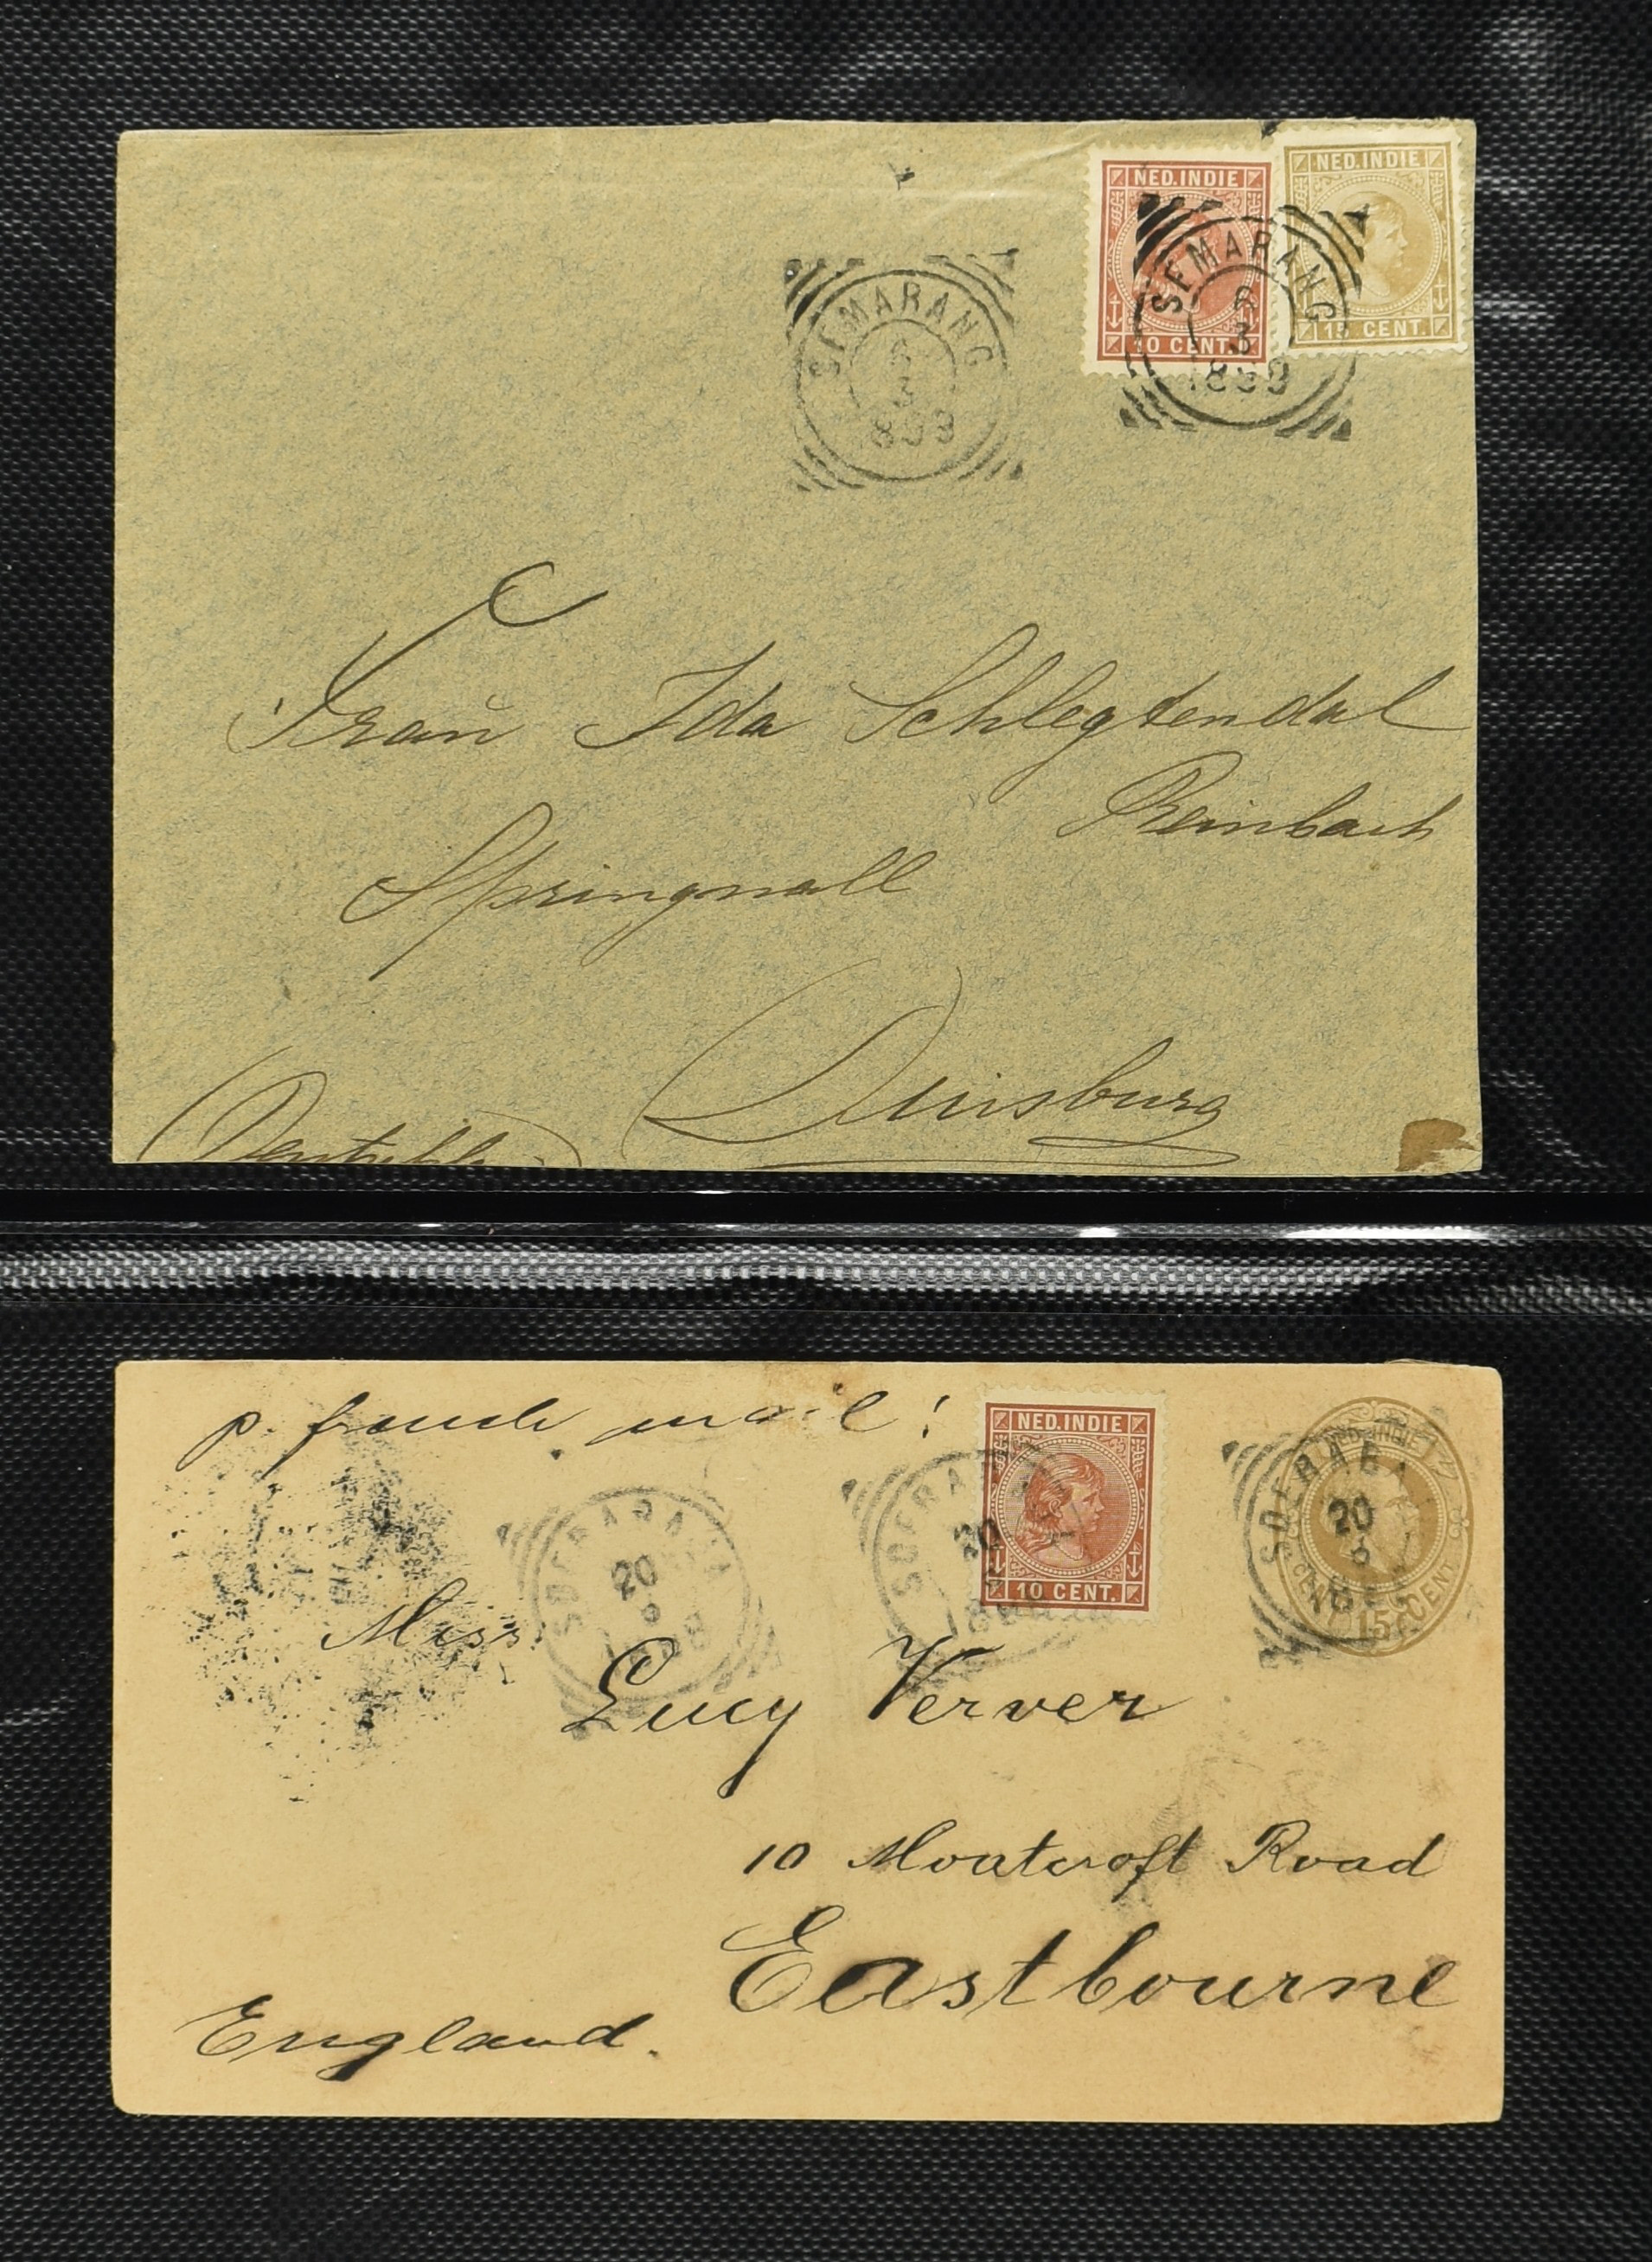 NED. INDIE
10 CENT.
NED. INDIE
15 CENT.
SEMARANG
6
3
1899
SEMARANG
6
3
Frau Ida Schlegtendal
Reinbach
Springwall
Duisburg
p. fransch mail!
NED. INDIE
10 CENT.
NED. INDIE
15 CENT
SOERABAJA
20
SOERABA
20
SOERABA
20
Miss
Lucy Verver
10 Moatcroft Road
Eastbourne
England.